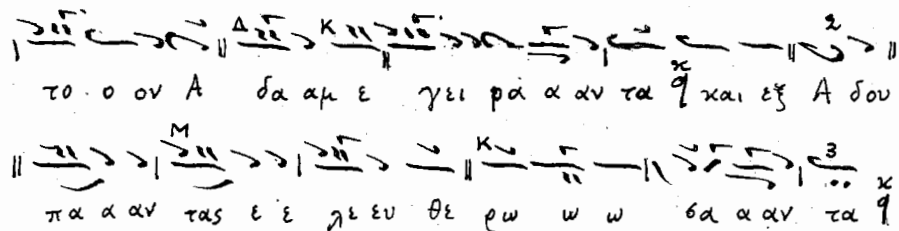 το ο ον Α δα αμ ε γει ρα α αν τα και εξ Α δου
πα α αν τας ε ε λε ευ θε ρω ω ω σα α αν τα